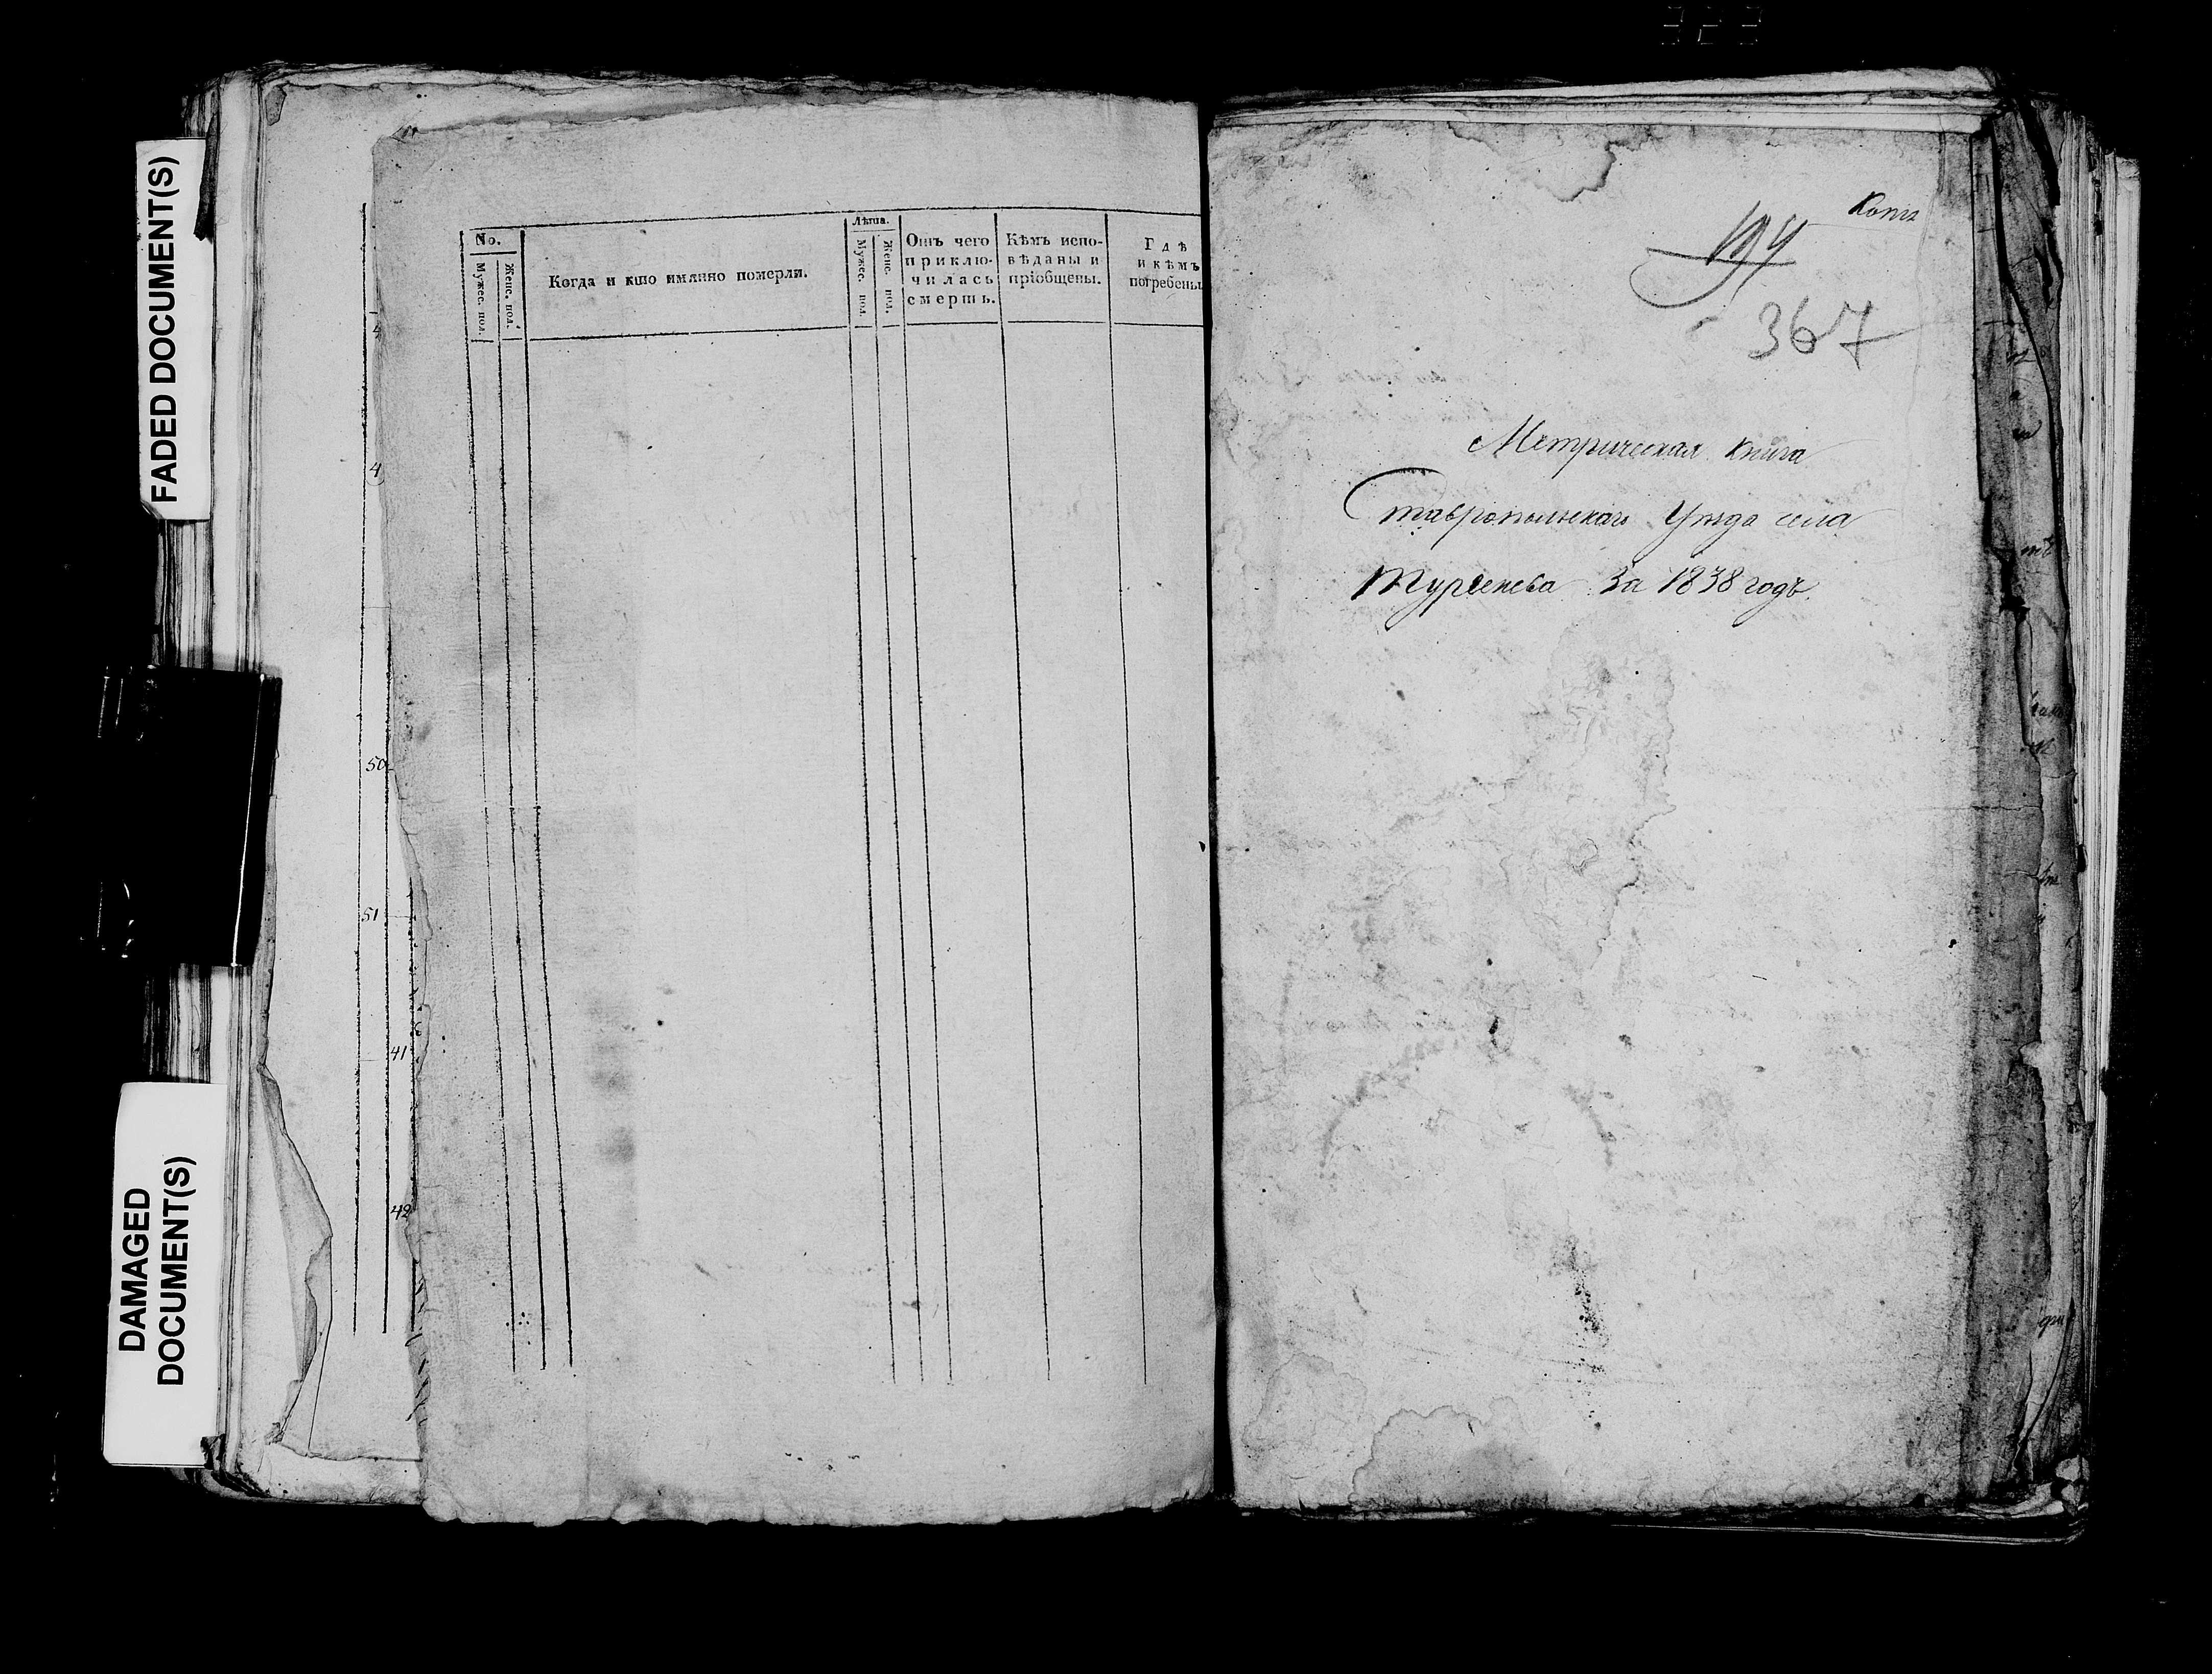 FADED DOCUMENT(S)
DAMAGED
DOCUMENT(S)
4
50
51
41
42
No.
Мужес. пол.
Женс. пол.
Когда и кто имянно померли.
Лѣта.
Мужес. пол.
Женс. пол.
Отъ чего
приклю-
чилась
смерть.
Кѣмъ испо-
вѣданы и
пріобщены.
Гдѣ
и кѣмъ
погребены
367
Метрическая книга
Ставропольскаго Уѣзда села
Тургенева За 1838 годъ.